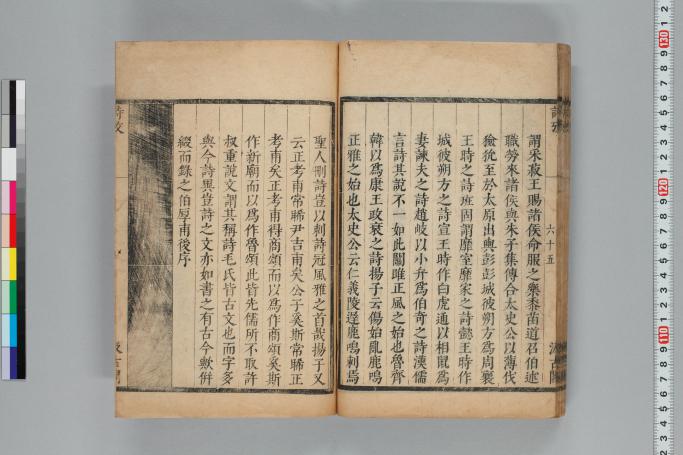 謂采菽王賜諸侯命服之樂黍苗道召伯述
職勞來諸侯與朱子集傳合太史公以薄伐
獫狁至於太原出輿彭彭城彼朔方爲周襄
王時之詩班固謂靡室靡家之詩懿王時作
城彼朔方之詩宣王時作白虎通以相鼠爲
妻諫夫之詩趙岐以小弁爲伯奇之詩漢儒
言詩其說不一如此關雎正風之始也魯齊
韓以爲康王政衰之詩揚子云傷始亂鹿鳴
正雅之始也太史公云仁義陵遲鹿鳴刺焉
六十五
聖人刪詩豈以刺詩冠風雅之首哉揚子又
云正考甫常睎尹吉甫矣公子奚斯常睎正
考甫矣正考甫得商頌而以爲作商頌奚斯
作新廟而以爲作魯頌此皆先儒所不取許
叔重說文謂其稱詩毛氏皆古文也而字多
與今詩異豈詩之文亦如書之有古今歟併
綴而錄之伯厚甫後序